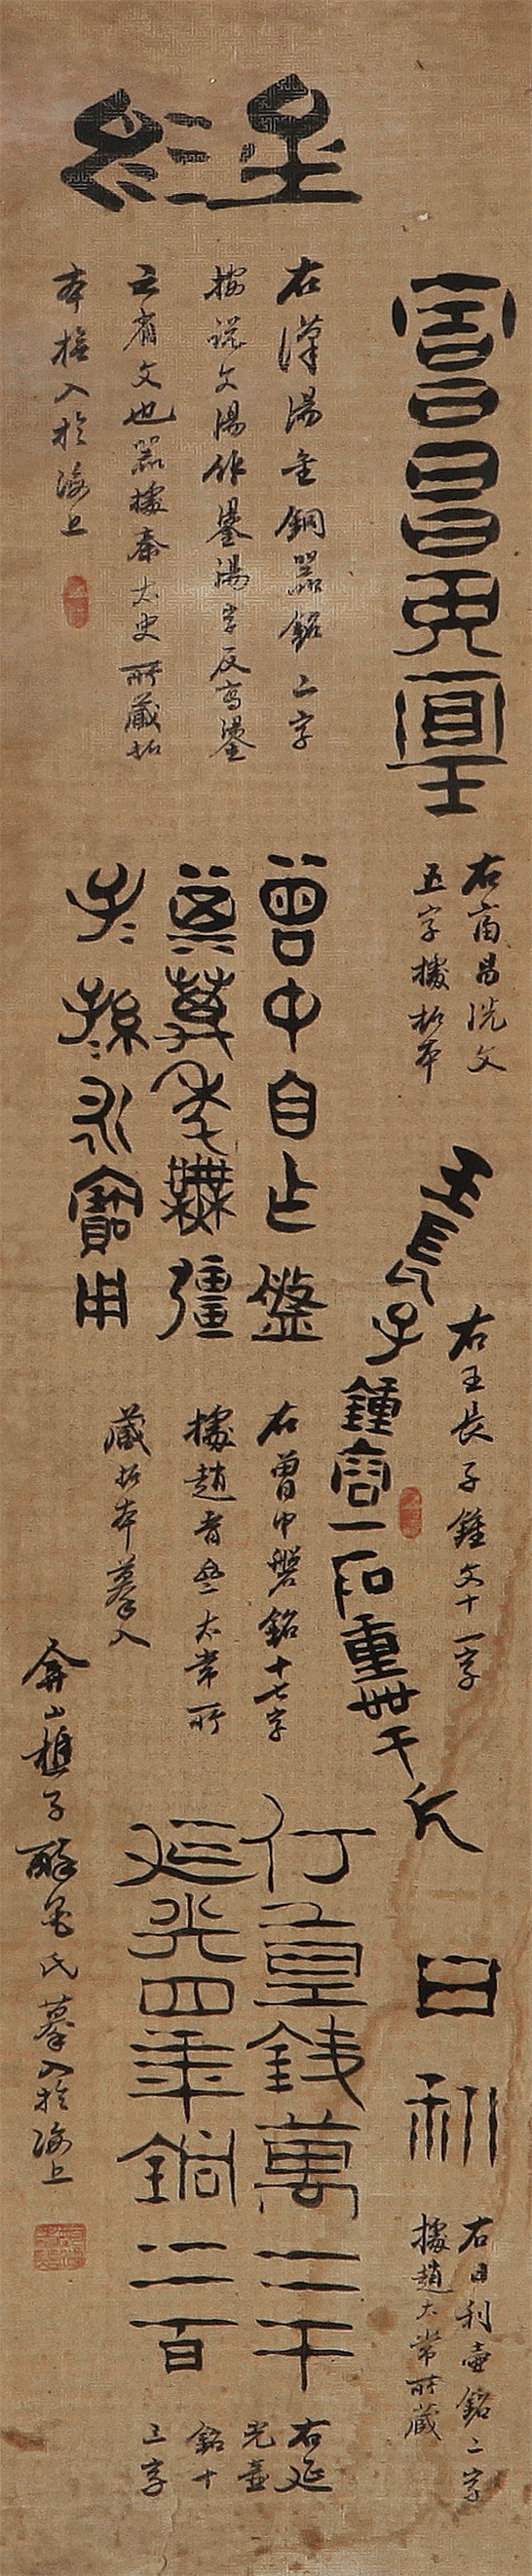 富昌宜侯王
右富昌洗文
五字據拓本
湯金
右漢湯金銅器銘二字
按説文湯作鐋湯字反寫鐋
之省文也器據秦太史所藏拓
本橅入於海上
王長子鍾容一石重卅千斤
右王長子鍾文十一字
曾中自作盤
其萬年無疆
子孫永寶用
右曾中盤銘十七字
據趙太常所
藏拓本摹入
日利
右日利壺銘二字
據趙太常所藏
行壺錢萬二千
延光四年銅二百
右延
光壺
銘十
三字
弇山樵子醉黽氏摹入於海上